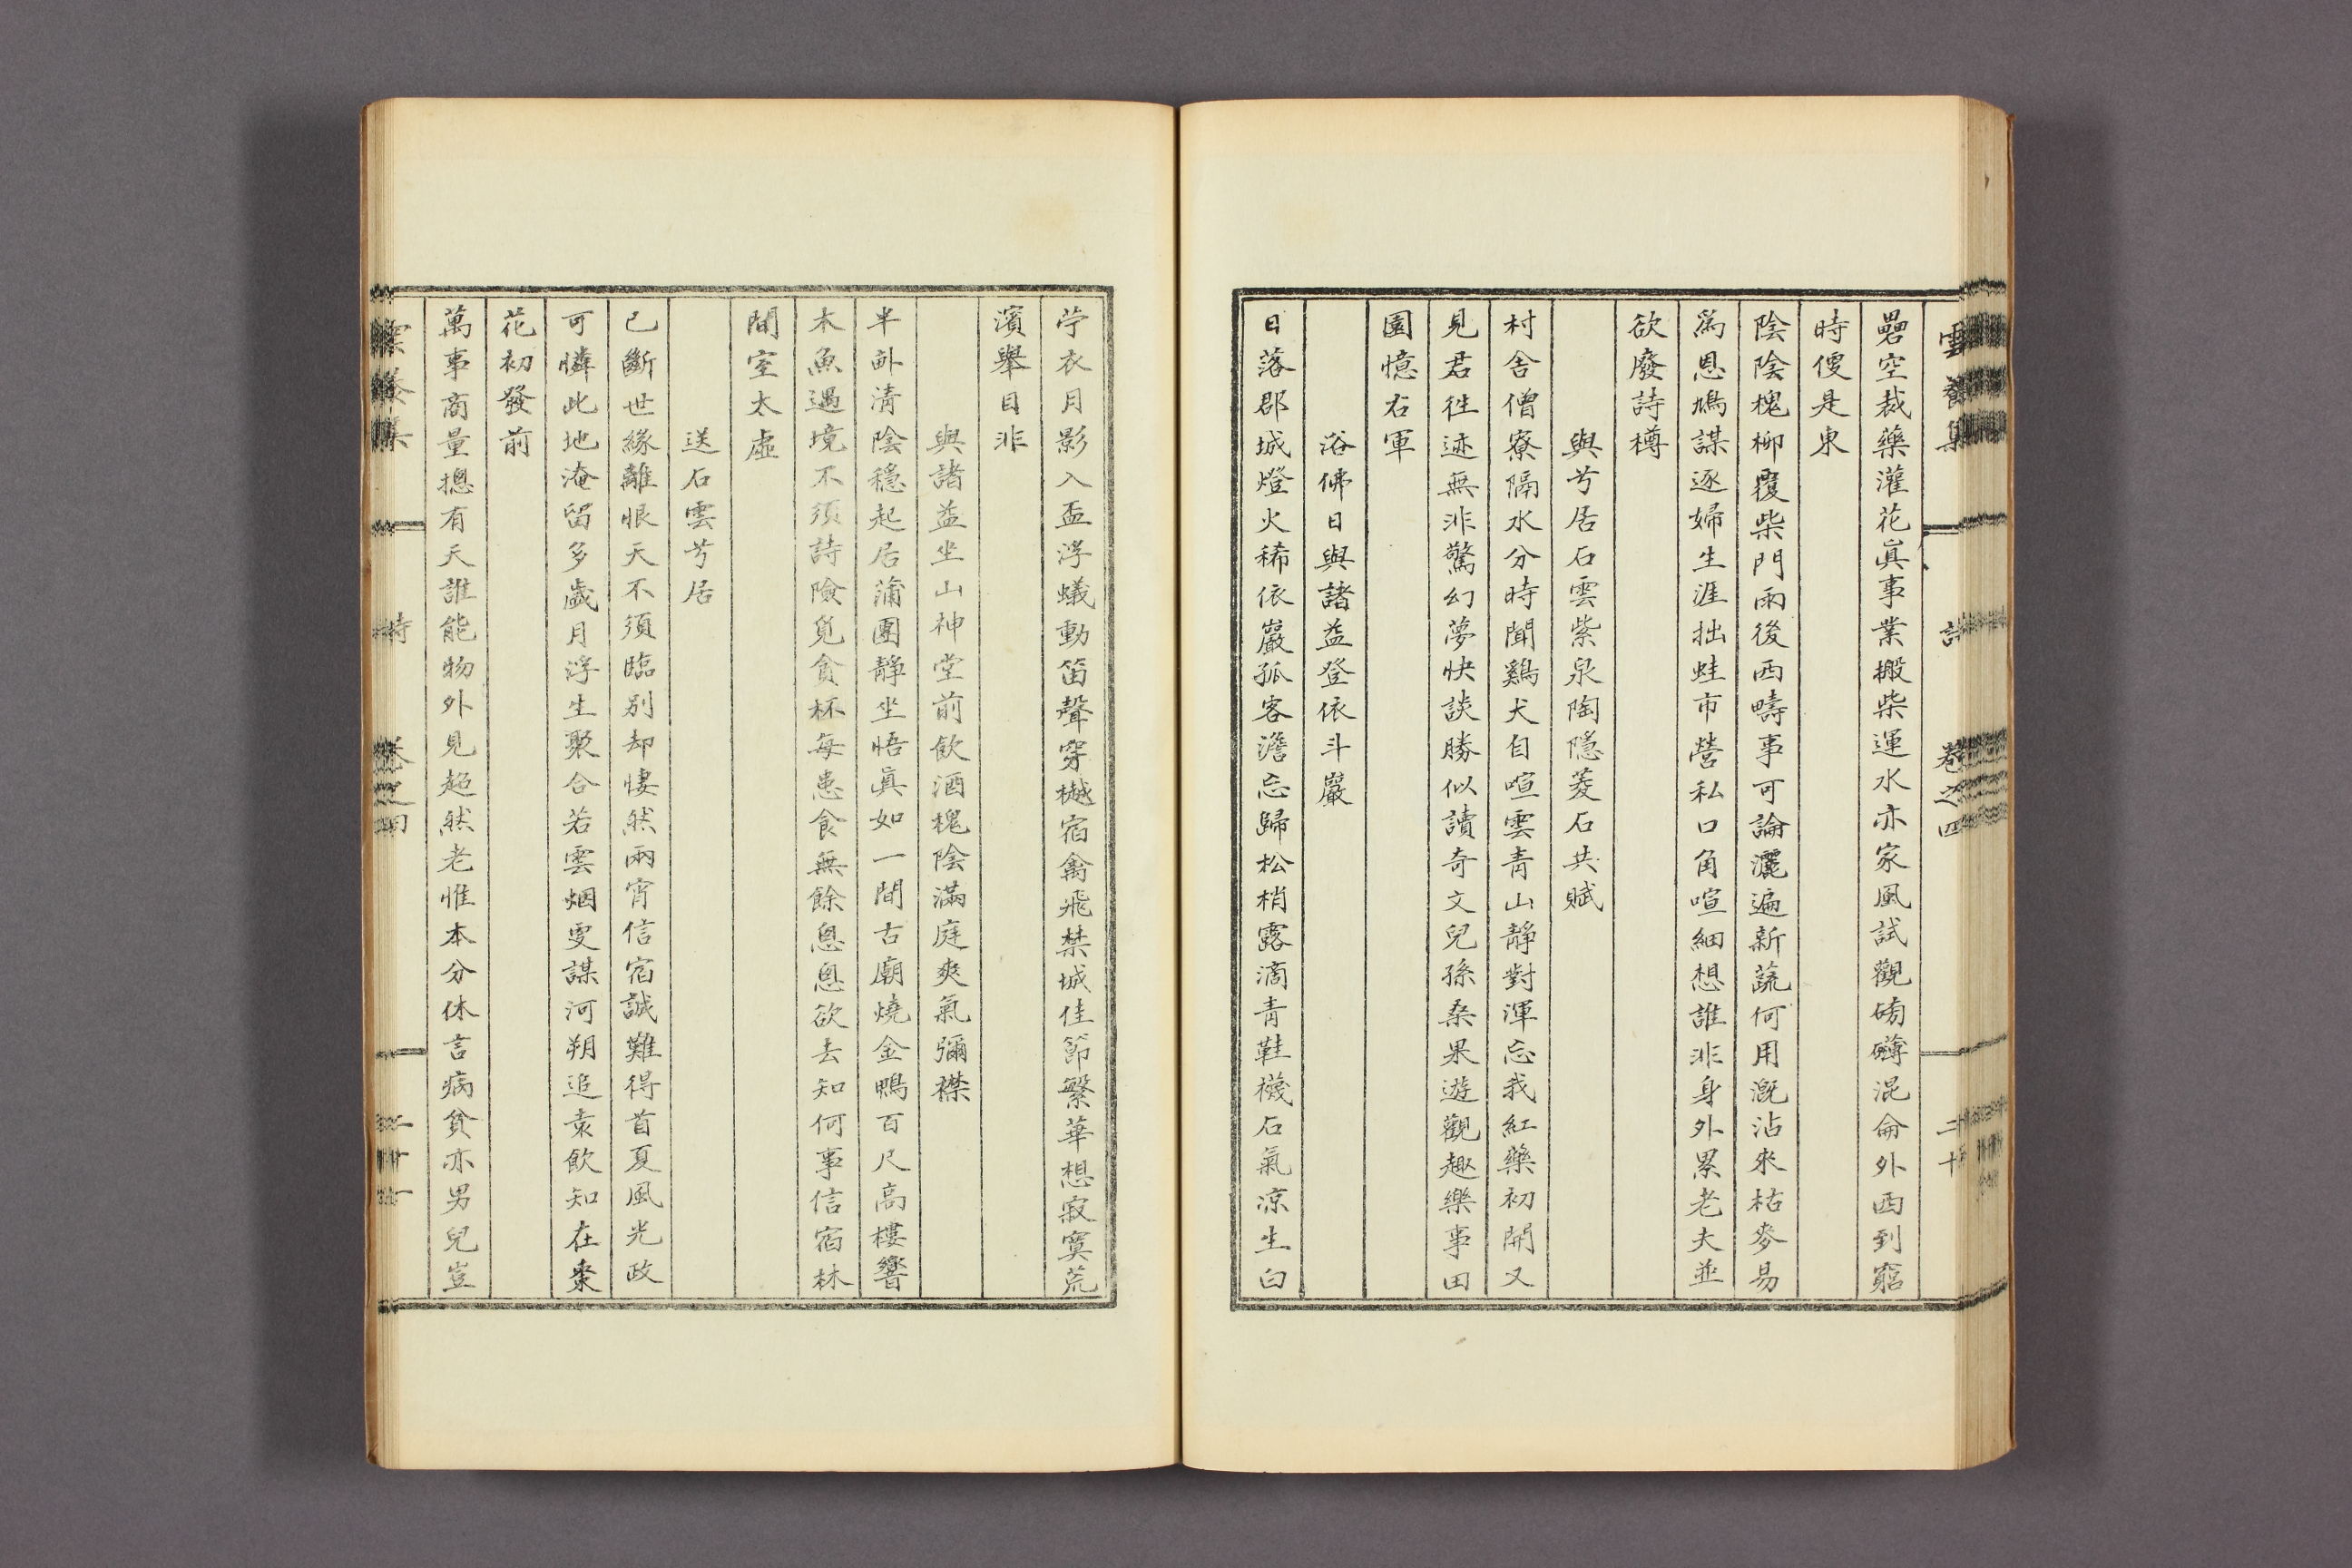 雲養集 詩 卷之四 二十
礨空裁藥灌花眞事業搬柴運水亦家風試觀磅礴混侖外西到窮
時便是東
陰陰槐柳覆柴門雨後西疇事可論灑遍新蔬何用漑沾來枯麥易
爲恩鳩謀逐婦生涯拙蛙市營私口角喧細想誰非身外累老夫並
欲廢詩樽
與芍居石雲紫泉陶隱菱石共賦
村舍僧寮隔水分時聞鷄犬自喧雲靑山靜對渾忘我紅藥初開又
見君徃迹無非驚幻夢快談勝似讀奇文兒孫桑果遊觀趣樂事田
園憶右軍
浴佛日與諸益登依斗巖
日落郡城燈火稀依巖孤客澹忘歸松梢露滴靑鞋襪石氣凉生白
苧衣月影入盃浮蟻動笛聲穿樾宿禽飛禁城佳節繁華想寂寞荒
濱擧目非
與諸益坐山神堂前飮酒槐陰滿庭爽氣彌襟
半畝淸陰穩起居蒲團靜坐悟眞如一間古廟燒金鴨百尺高樓響
木魚遇境不須詩險覓貪杯每患食無餘悤悤欲去知何事信宿林
間室太虛
送石雲芍居
已斷世緣離恨天不須臨别却悽然兩宵信宿誠難得首夏風光政
可憐此地淹留多歲月浮生聚合若雲烟更謀河朔追袁飮知在棗
花初發前
萬事商量揔有天誰能物外見超然老惟本分休言病貧亦男兒豈
雲養集 詩 卷之四 二十一